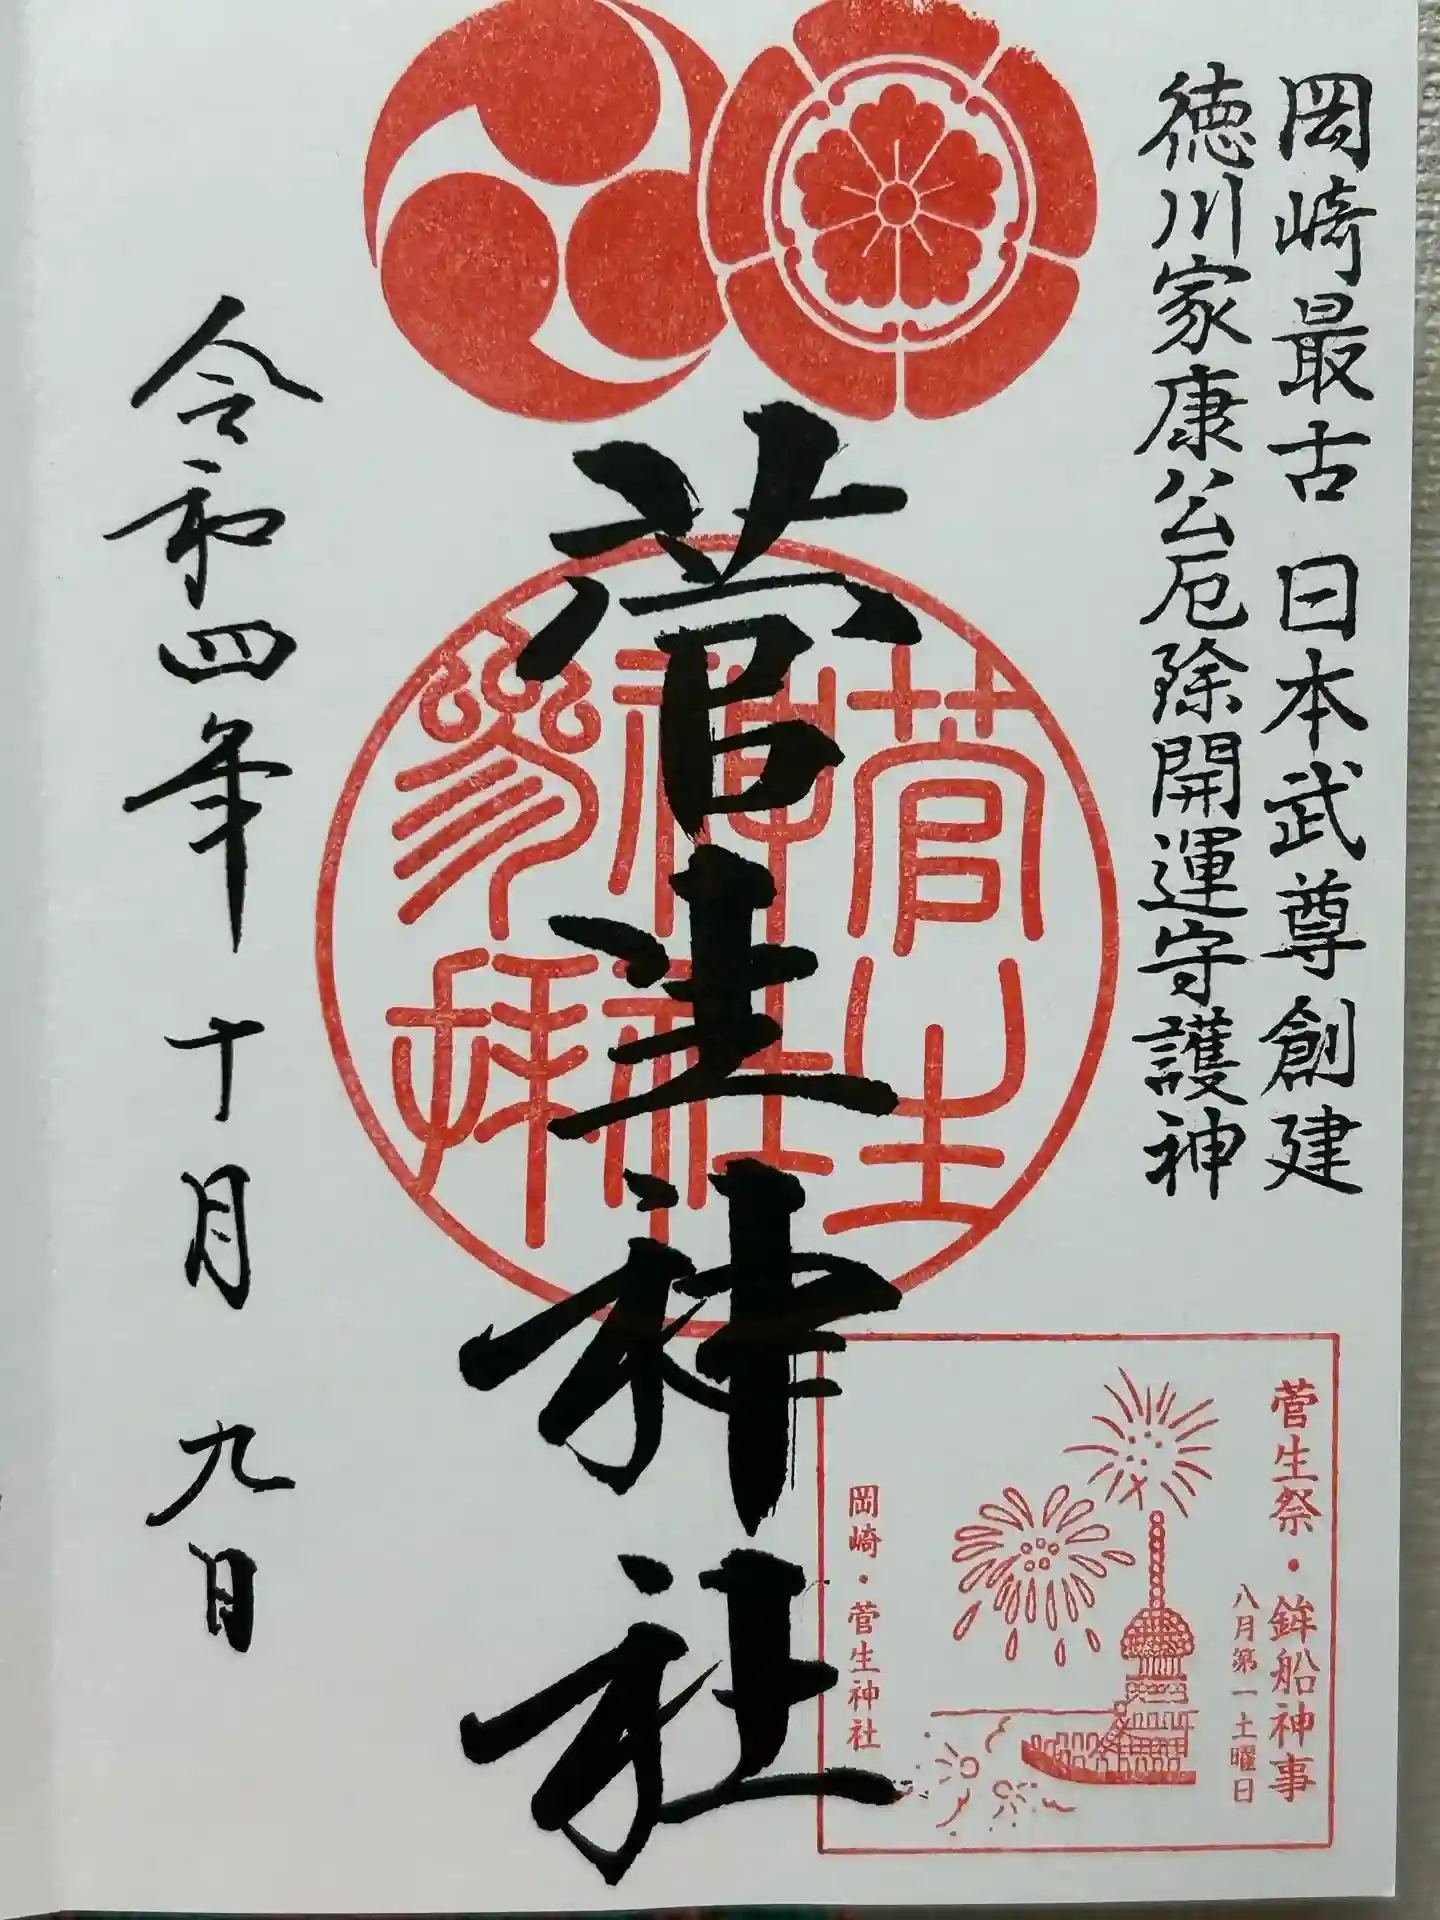 岡崎最古 日本武尊創建
徳川家康公厄除開運守護神
菅生神社
菅生
神社
参拝
令和四年 十月 九日
菅生祭・鉾船神事
八月第一土曜日
岡崎・菅生神社